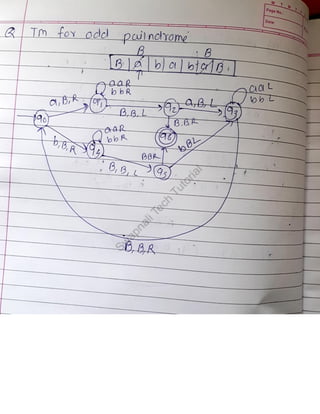 Page No.
Date
Q TM for odd palindrome
B B
B a b a b a B
aaR
bbR
a,B,R
q0
q1
B,B,L
q2
a,B,L
q3
aaL
bbL
B,BR
q6
b,B,R
aaR
bbR
q4
B,B,L
BBR
q5
bBL
B,B,R
Tech Tutorial